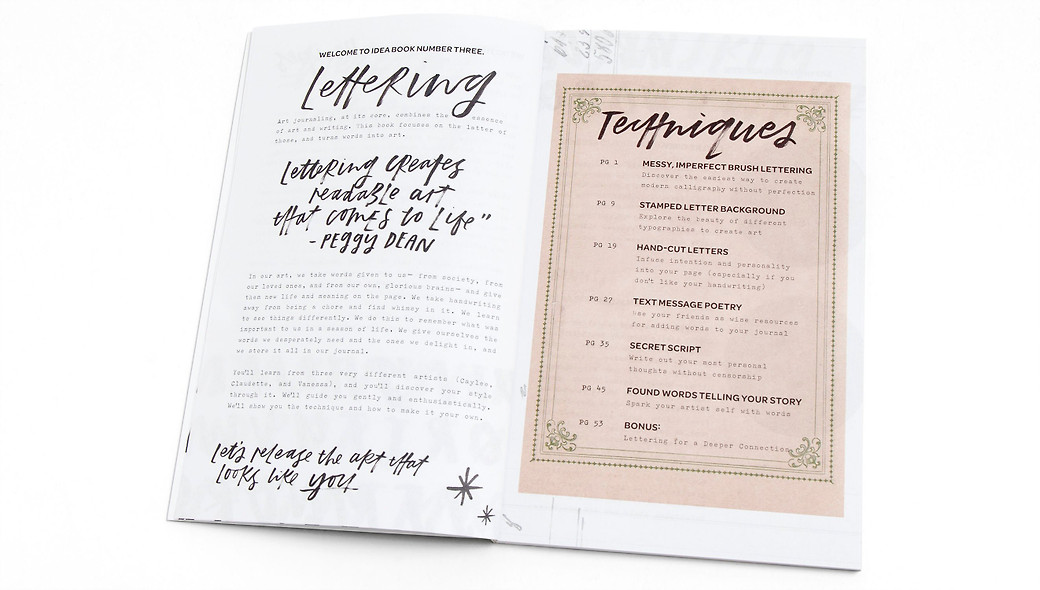 WELCOME TO IDEA BOOK NUMBER THREE.
Lettering
Art journaling, at its core, combines the essence
of art and writing. This book focuses on the latter of
these, and turns words into art.
Lettering creates
readable art
that comes to life"
- PEGGY DEAN
In our art, we take words given to us— from society, from
our loved ones, and from our own, glorious brains— and give
them new life and meaning on the page. We take handwriting
away from being a chore and find whimsy in it. We learn
to see things differently. We do this to remember what was
important to us in a season of life. We give ourselves the
words we desperately need and the ones we delight in, and
we store it all in our journal.
You'll learn from three very different artists (Caylee,
Claudette, and Vanessa), and you'll discover your style
through it. We'll guide you gently and enthusiastically.
We'll show you the technique and how to make it your own.
Let's release the art that
looks like you!
Techniques
PG 1 MESSY, IMPERFECT BRUSH LETTERING
Discover the easiest way to create
modern calligraphy without perfection
PG 9 STAMPED LETTER BACKGROUND
Explore the beauty of different
typographies to create art
PG 19 HAND-CUT LETTERS
Infuse intention and personality
into your page (especially if you
don't like your handwriting)
PG 27 TEXT MESSAGE POETRY
Use your friends as wise resources
for adding words to your journal
PG 35 SECRET SCRIPT
Write out your most personal
thoughts without censorship
PG 45 FOUND WORDS TELLING YOUR STORY
Spark your artist self with words
PG 53 BONUS:
Lettering for a Deeper Connection